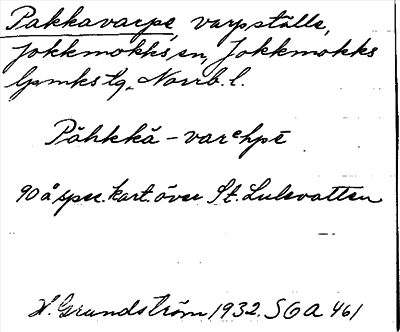 Pakkavarpe, varpställe,
Jokkmokks sn, Jokkmokks
lpmks tg, Norrb. l.
Påhkkå - varᵉhpē
90 å spec. kart. över St. Lulevatten
H. Grundström 1932. SOA 461